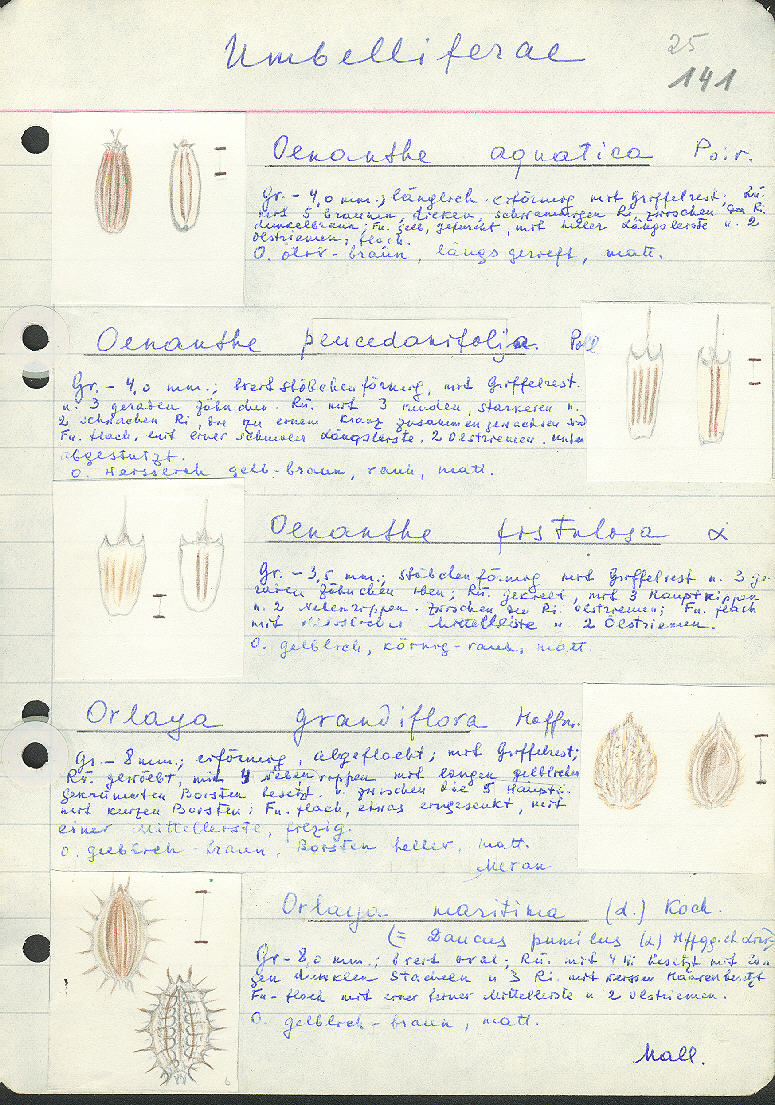 Umbelliferae
25
141
Oenanthe aquatica Poir.
Gr. - 4,0 mm.; länglich eiförmig mit Griffelrest; Rü.
mit 5 braunen, dicken, schwammigen Ri. zwischen den Ri.
dunkelbraun; Fu. gelb, gefurcht, mit heller Längsleiste u. 2
Ölstriemen; flach.
O. oliv-braun, längs gerieft, matt.
Oenanthe peucedanifolia. Poll
Gr. - 4,0 mm.; breit stäbchenförmig, mit Griffelrest
u. 3 geraden Zähnchen. Rü. mit 3 runden, stärkeren u.
2 schwachen Ri, die zu einem Kranz zusammengewachsen sind
Fu. flach, mit einer schmalen Längsleiste, 2 Ölstriemen. unten
abgestutzt.
O. weisslich gelb-braun, rauh, matt.
Oenanthe fistulosa L
Gr. - 3,5 mm.; stäbchenförmig mit Griffelrest u. 3 ge-
raden Zähnchen oben; Rü. gekielt, mit 3 Hauptrippen
u. 2 Nebenrippen. Zwischen den Ri. Ölstriemen; Fu. flach
mit weisslicher Mittelleiste u 2 Ölstriemen.
O. gelblich, körnig-rauh, matt
Orlaya grandiflora Hoffm.
Gr. - 8 mm.; eiförmig, abgeflacht; mit Griffelrest;
Rü. gewölbt, mit 4 Nebenrippen mit langen gelblichen
gekrümmten Borsten besetzt u. zwischen die 5 Hauptri.
mit kurzen Borsten; Fu. flach, etwas eingesenkt, mit
einer Mittelleiste, filzig.
O. gelblich-braun, Borsten heller, matt.
Meran
Orlaya maritima (L.) Koch.
(= Daucus pumilus (L)
Gr - 8,0 mm.; breit oval; Rü. mit 4 Ri besetzt mit lan-
gen dunklen Stacheln u 3 Ri. mit weissen Haaren besetzt
Fu - flach mit einer feiner Mittelleiste u 2 Ölstriemen.
O. gelblich-braun, matt.
Mall.